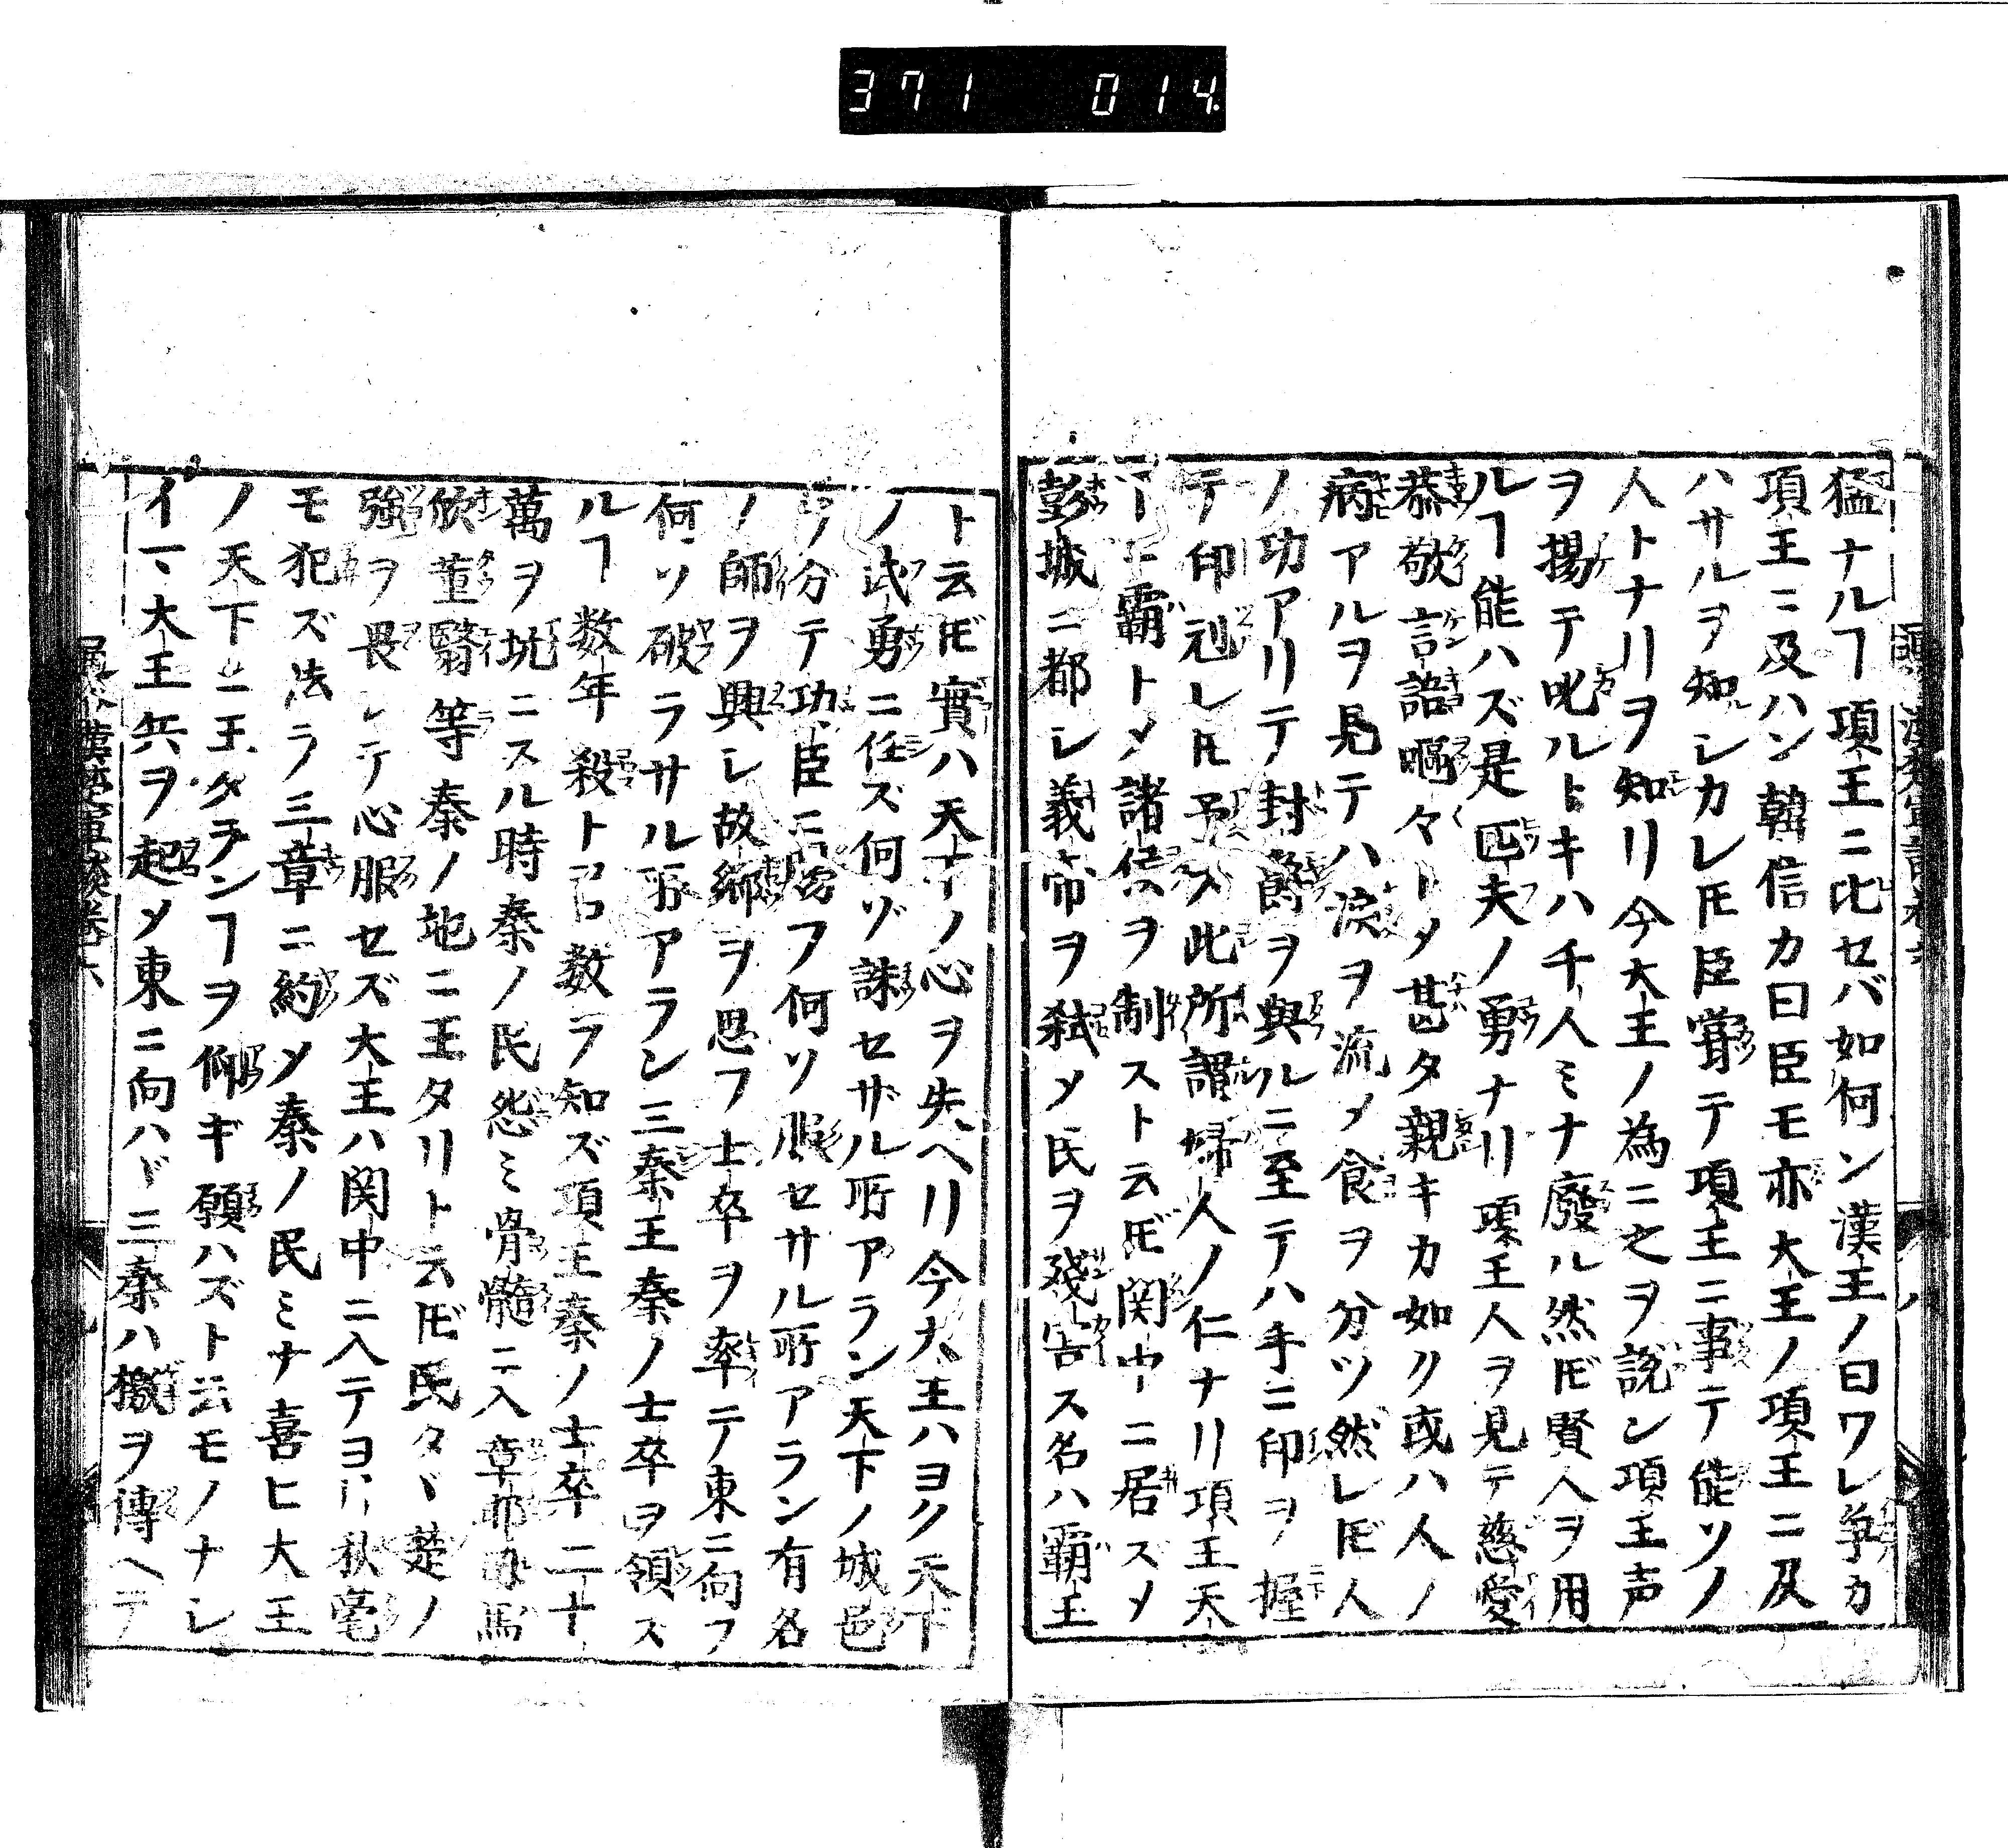 371 014
猛ナルヿ項王ニ比セバ如何ン漢王ノ曰ワレ争カ
項王ニ及ハン韓信カ曰臣モ亦大王ノ項王ニ及
ハサルヲ知シカレ𪜈臣嘗テ項王ニ事テ能ソノ
人トナリヲ知リ今大王ノ為ニ之ヲ説ン項王声
ヲ揚テ叱ルトキハ千人ミナ廢ル然𪜈賢人ヲ用
ルヿ能ハズ是匹夫ノ勇ナリ項王人ヲ見テ慈愛
恭敬言語嘔々トメ甚タ親キカ如ク或ハ人ノ
病アルヲ見テハ涙ヲ流メ食ヲ分ツ然レ𪜈人
ノ功アリテ封爵ヲ與ルニ至テハ手ニ印ヲ握
テ印刓レ𪜈予ス此所謂婦人ノ仁ナリ項王天
下ニ覇トメ諸侯ヲ制スト云𪜈関中ニ居スメ
彭城ニ都シ義帝ヲ弑メ民ヲ殘害ス名ハ覇王
ト云𪜈實ハ天下ノ心ヲ失ヘリ今大王ハヨク天下
ノ武勇ニ任ズ何ゾ誅セザル所アラン天下ノ城邑
ヲ分テ功臣ニ賜フ何ソ服セサル所アラン有名
ノ師ヲ興シ故郷ヲ思フ士卒ヲ率テ東ニ向フ
何ソ破ラサル所アラン三秦王秦ノ士卒ヲ領ス
ルヿ数年殺ト乃数ヲ知ズ項王秦ノ士卒二十
萬ヲ坑ニスル時秦ノ民怨ミ骨髓ニ入章邯司馬
欣董翳等秦ノ地ニ王タリト云𪜈民タヾ楚ノ
強ヲ畏レテ心服セズ大王ハ関中ニ入テヨリ秋毫
モ犯ズ法ヲ三章ニ約メ秦ノ民ミナ喜ヒ大王
ノ天下ニ王タランヿヲ仰ギ願ハズト云モノナシ
イマ大王兵ヲ起メ東ニ向ハヾ三秦ハ檄ヲ傳ヘテ